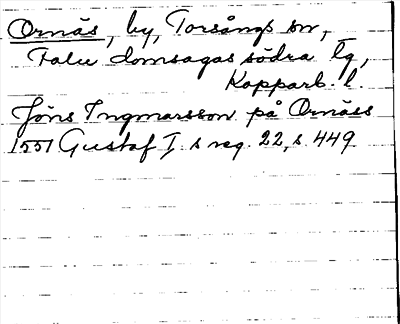 Ornäs, by, Torsångs sn,
Falu domsagas södra tg,
Kopparb. l.
Jöns Ingmarsson på Ornäss
1551 Gustaf I s reg. 22, s. 449